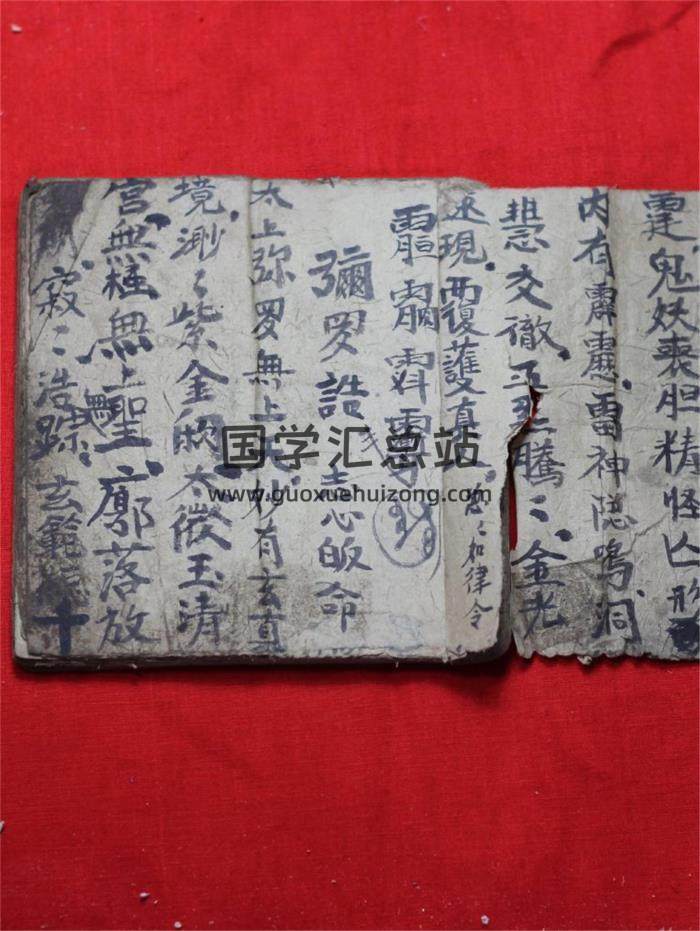 霆鬼妖喪胆精怪亡形
内有霹靂雷神隐鳴洞
慧交徹五炁騰〻金光
速現覆護真 急〻如律令
彌罗誥 志皈命
太上弥罗無上天妙有玄真
境渺〻紫金欣太微玉清
宫無極無上聖廓落放
寂〻浩踪玄範 十
国学汇总站
www.guoxuehuizong.com